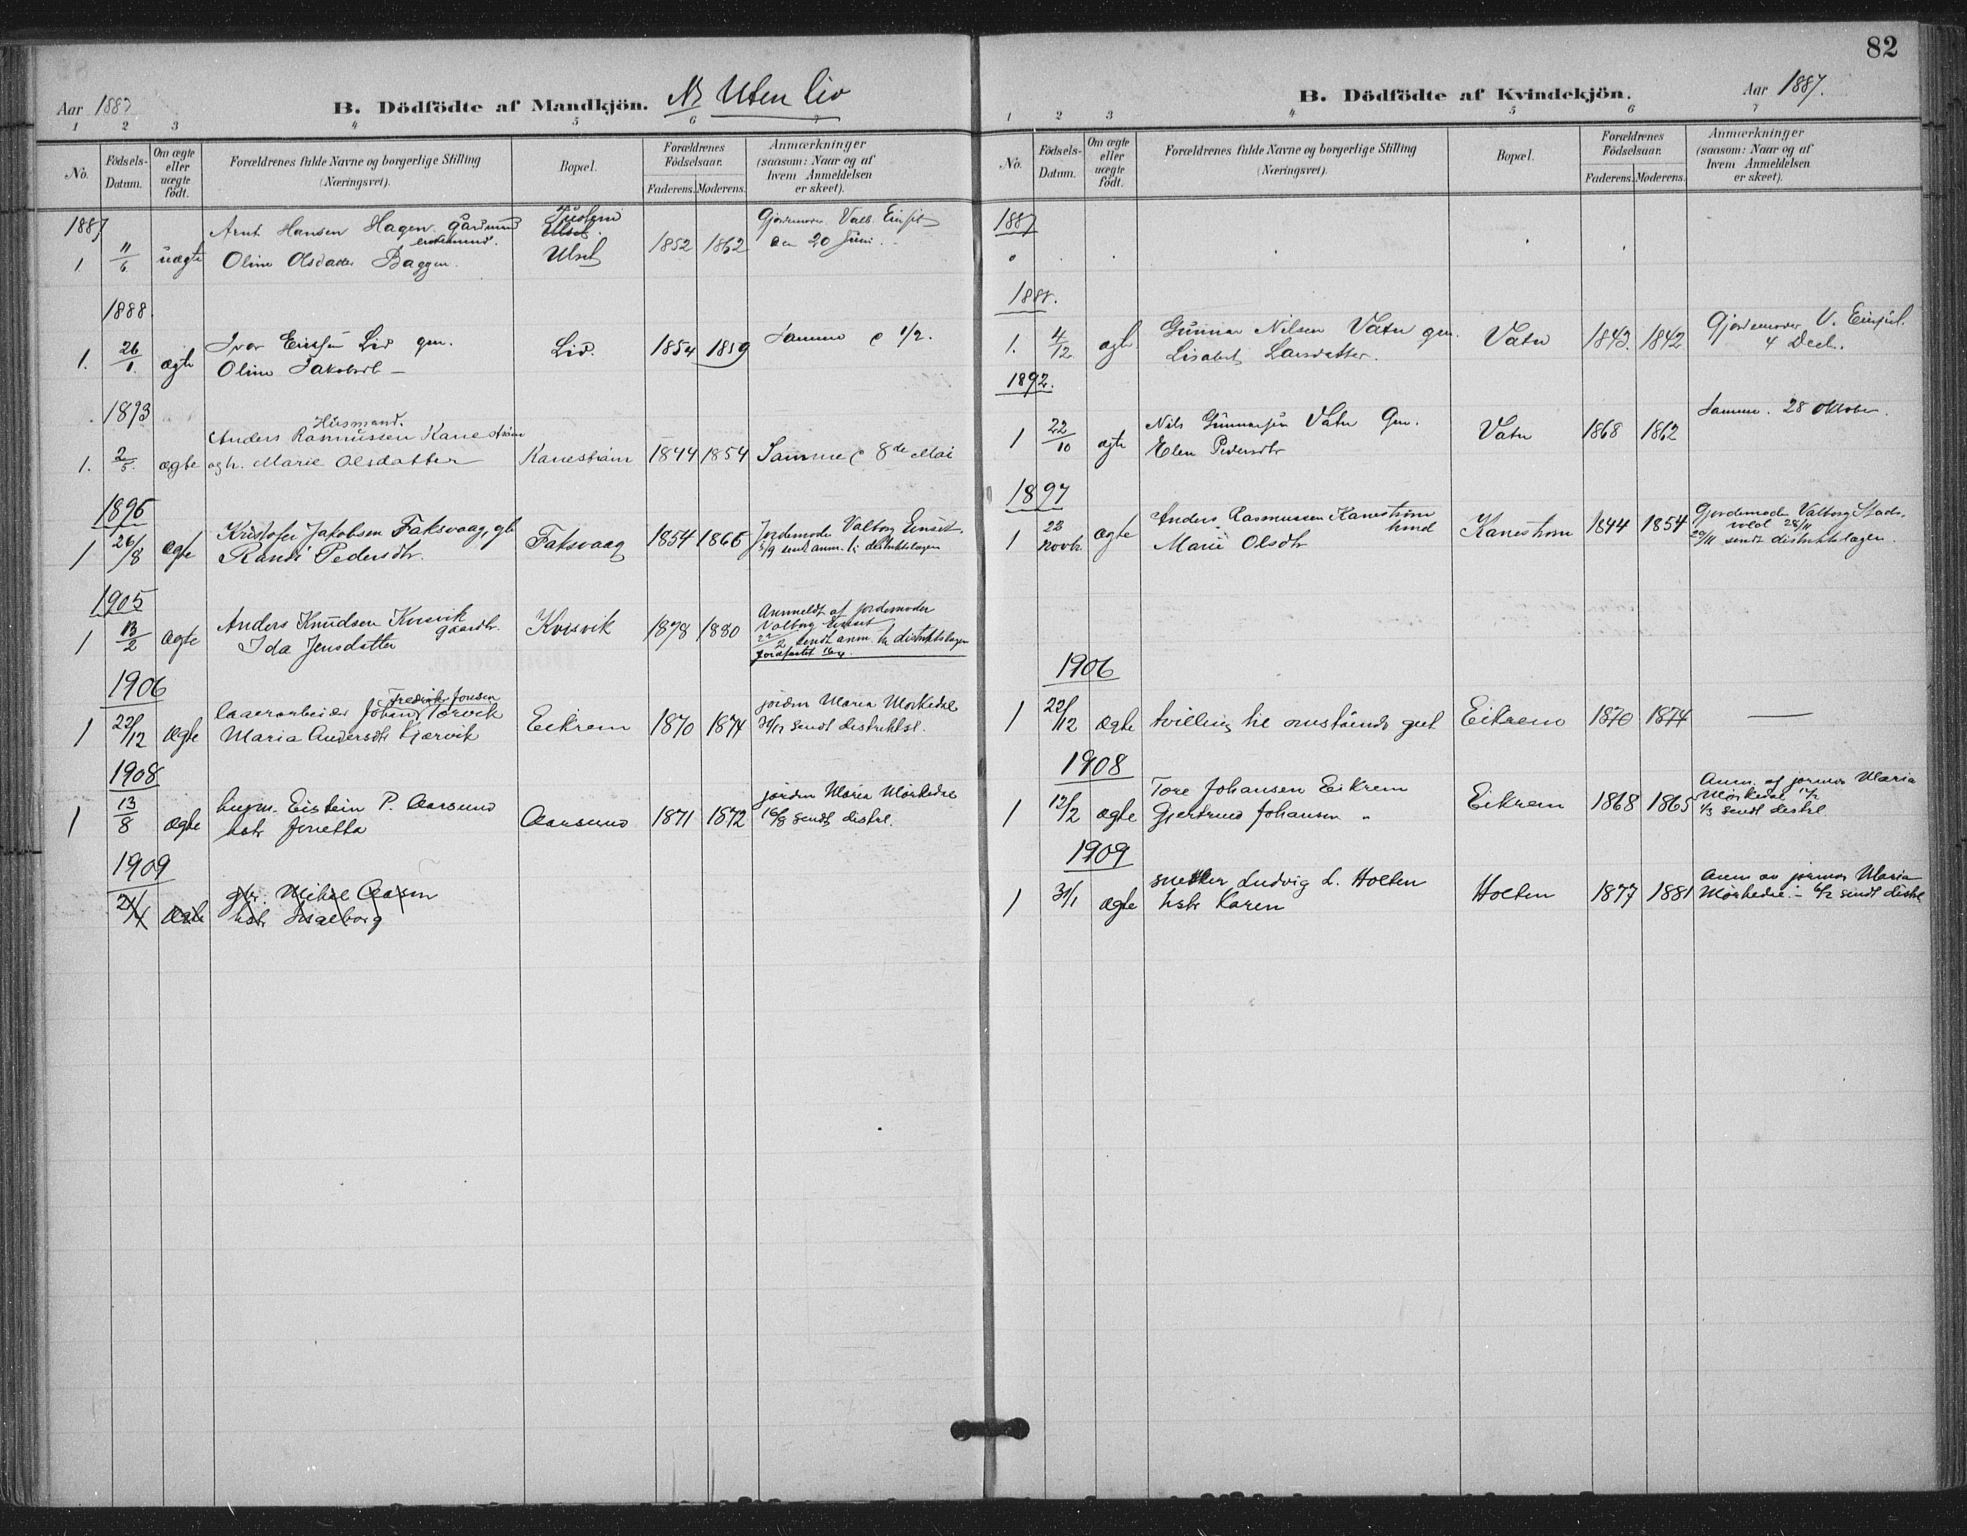 82
Aar 1887
B. Dödfödte af Mandkjön. Uten Liv
1 2 3 4 5 6 7
No.
Födsels-
Datum.
Om ægte
eller
uægte
födt.
Forældrenes fulde Navne og borgerlige Stilling
(Næringsvei).
Bopæl.
Forældrenes
Födselsaar.
Faderens. Moderens.
Anmærkninger
(saasom: Naar og af
hvem Anmeldelsen
er skeet).
1887
Arnt Hansen Hagen
1 11/6 uægte Oline Olsdatter Baggen. Ulset 1852 1862 den 20 Juni
1888.
Ivar Lid gm.
1. 26/1 ægte Oline Jakobsd — Lid. 1854 1859 Samme 1/2.
1893
Husmand.
Anders Rasmussen Kanestrøm
1. 2/5. ægte og h. Marie Olsdatter Kanestrøm 1844 1854 Samme 8de Mai
1896
Kristofer Jakobsen Faksvaag, gb
1 26/8 ægte Randi Pedersdtr. Faksvaag 1854 1866 Jordemoder Valborg Einset
sendt anm. til distriktslægen
1905
Anders Knudsen Kvisvik
gaardbr.
1 13/2 ægte Ida Jensdatter Kvisvik 1878 1880 Anmeldt af jordemoder
Valborg Einset
22/2 sendt anm. til distriktslægen
jordfæstet
1906
Fredrik Jonsen
1 22/12 ægte Johan Torvik
Maria Andersdtr Eikrem 1870 1874 jordm Maria Mørkedal
sendt distriktsl.
1908
1 13/8 ægte husm. Eistein P. Aarsund
hstr Jonetta Aarsund 1871 1872 jordm Maria Mørkedal
16/8 sendt distrl.
1909
21/1 ægte gbr. Mikal Aasen
hstr Ingeborg
B. Dödfödte af Kvindekjön.
Aar 1887.
1 2 3 4 5 6 7
No.
Födsels-
Datum.
Om ægte
eller
uægte
födt.
Forældrenes fulde Navne og borgerlige Stilling
(Næringsvei).
Bopæl.
Forældrenes
Födselsaar.
Faderens. Moderens.
Anmærkninger
(saasom: Naar og af
hvem Anmeldelsen
er skeet).
1887
1888.
1. 4/12 ægte Gunnar Nilsen Vatn gm.
Lisabet Larsdatter. Vatn 1843. 1842 Gjordemoder V. Einset.
4 Decb.
1892.
1 22/10 ægte Nils Gunnarsen Vatn Gm.
Elen Pedersdtr Vatn 1868 1862 Samme. 28 Oktober.
1897
1 22 novbr. ægte Anders Rasmussen Kanestrøm
husmd
Marie Olsdtr Kanestrøm 1844 1854 Gjordemoder Valborg Stads-
vold
29/11 sendt distriktslægen.
1906
1 22/12 ægte tvilling til omstående gut Eikrem 1870 1874 —
1908
1 12/2 ægte Tore Johansen Eikrem
Gjertrud Johansen " Eikrem 1868 1865 Anm. af jormor Maria
Mørkedal
1/3 sendt distrl.
1909
1 31/1 ægte snekker Ludvig L. Holten
hstr Karen Holten 1877 1881 Anm av jormor Maria
Mørkedal – 6/2 sendt distrl